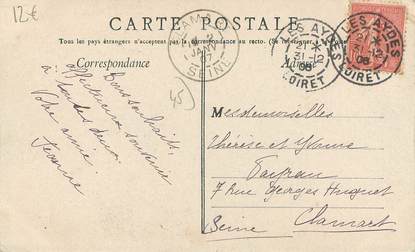 12€
CARTE POSTALE
Tous les pays étrangers n'acceptent pas la correspondance au recto. (Se renseigner à la Poste).
Correspondance
CLAMART
JANV
07
SEINE
LES AYDES
21
31-12
06
LOIRET
LES AYDES
21
31-12
06
LOIRET
45)
Bons souhaits,
affectueux souvenir
à toutes deux.
Votre amie
Jeanne
Mesdemoiselles
Thérèse et Yvonne
7 Rue Georges Huguet
Clamart
Seine